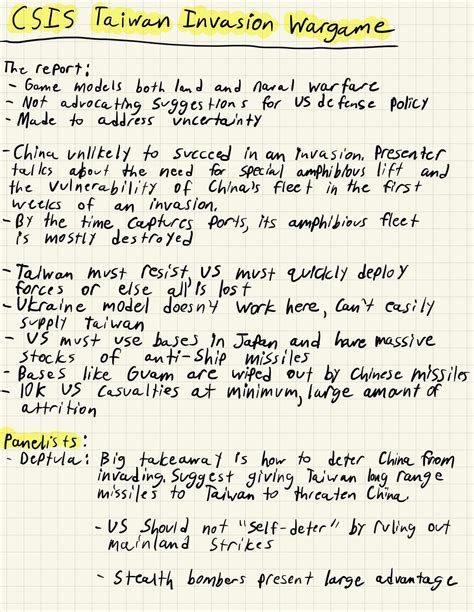 CSIS Taiwan Invasion Wargame
The report:
- Game models both land and naval warfare
- Not advocating suggestions for US defense policy
- Made to address uncertainty
- China unlikely to succeed in an invasion. Presenter
talks about the need for special amphibious lift and
the vulnerability of China's fleet in the first
weeks of an invasion.
- By the time captures ports, its amphibious fleet
is mostly destroyed
- Taiwan must resist, US must quickly deploy
forces or else all is lost
- Ukraine model doesn't work here, can't easily
supply Taiwan
- US must use bases in Japan and have massive
stocks of anti-ship missiles
- Bases like Guam are wiped out by Chinese missiles
- 10K US casualties at minimum, large amount of
attrition
Panelists:
- Deptula: Big takeaway is how to deter China from
invading. Suggest giving Taiwan long range
missiles to Taiwan to threaten China
- US should not "self-deter" by ruling out
mainland strikes
- Stealth bombers present large advantage